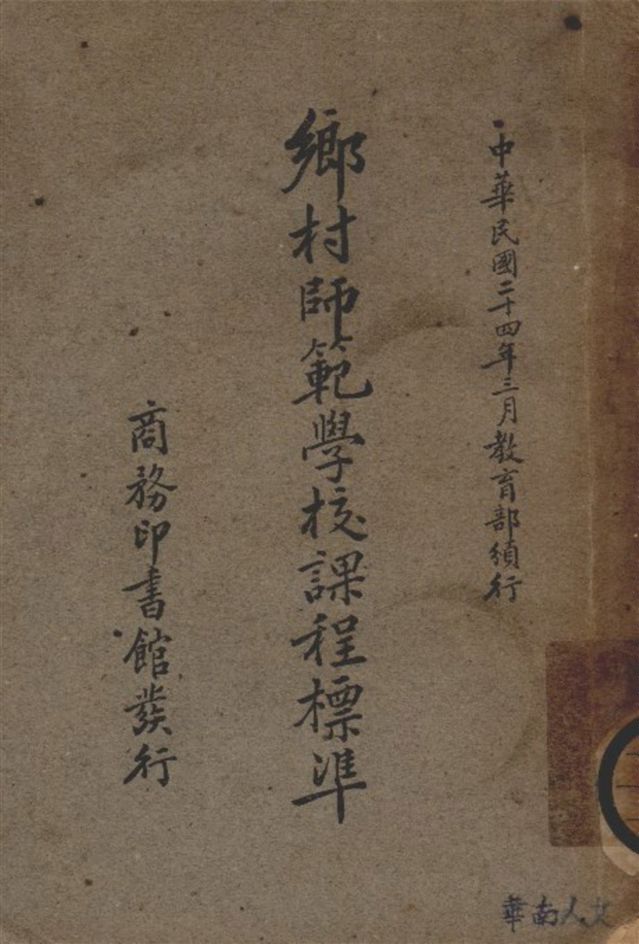 中華民國二十四年三月教育部頒行
鄉村師範學校課程標準
商務印書館發行
華南人文